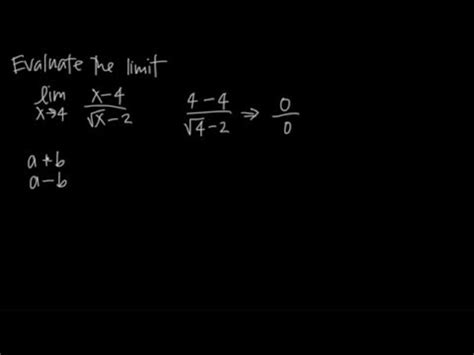 Evaluate the limit
lim x→4 (x-4)/(√x-2) (4-4)/(√4-2) ⇒ 0/0
a+b
a-b